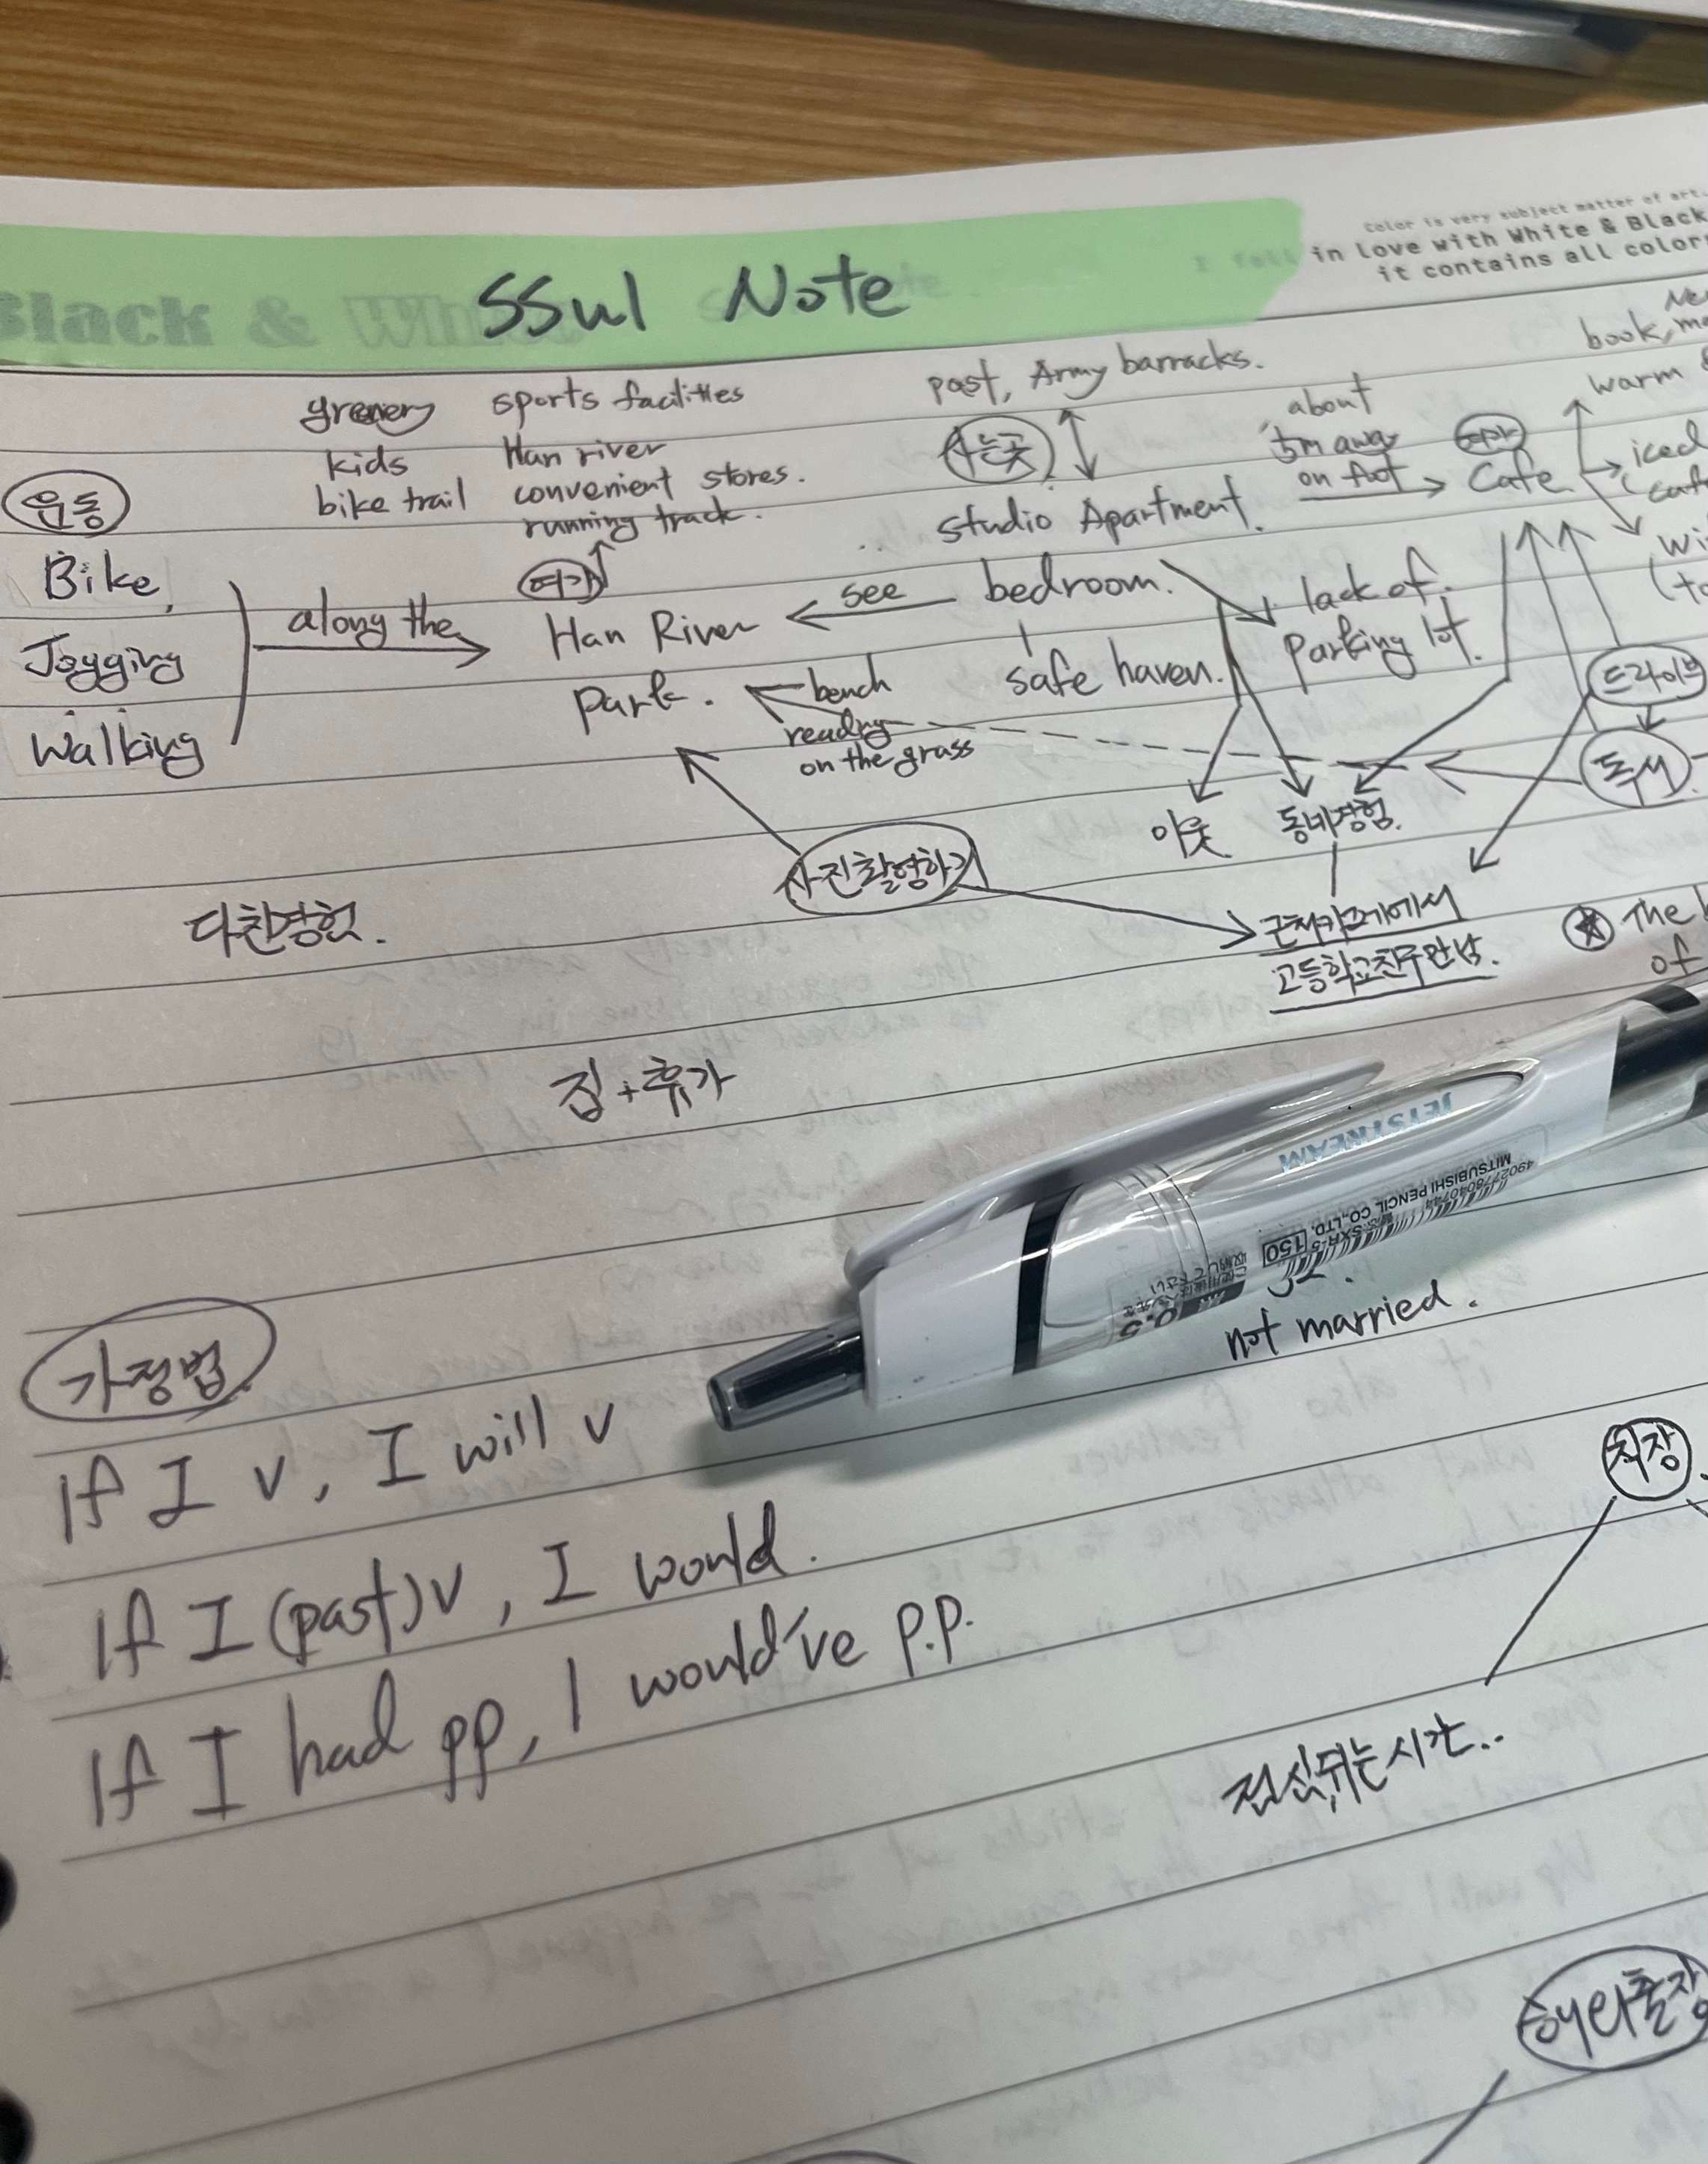 Color is very subject matter of art.
I fall in love with White & Black
it contains all color
Black & White
SSul Note
past, Army barracks.
book,
warm
grenery
kids
bike trail
sports facilities
Han river
convenient stores.
running track.
사는곳
studio Apartment.
about
5m away
on foot
여가
Cafe
iced
운동
Bike,
Jogging
Walking
along the
여가
Han River
Park.
see
bedroom.
safe haven.
lack of.
Parking lot.
bench
reading
on the grass
드라이브
독서
이웃
동네경험.
사진촬영하기
근처카페에서
고등학교친구만남.
다친경험.
The
of
집+휴가
JETSTREAM
MITSUBISHI PENCIL CO.,LTD.
4902778040744
SXR-5
150
0.5
not married.
가정법
If I v, I will v
If I (past)v, I would.
If I had pp, I would've p.p.
직장
점심,쉬는시간..
해외출장